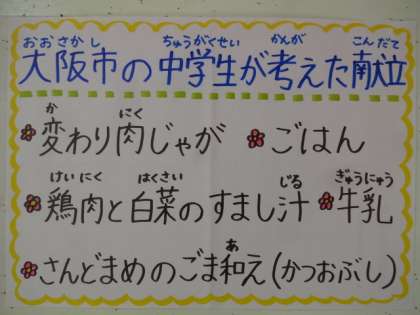 おおさかし ちゅうがくせい かんが こんだて
大阪市の中学生が考えた献立
か にく
変わり肉じゃが ごはん
けいにく はくさい じる ぎゅうにゅう
鶏肉と白菜のすまし汁 牛乳
あ
さんどまめのごま和え(かつおぶし)